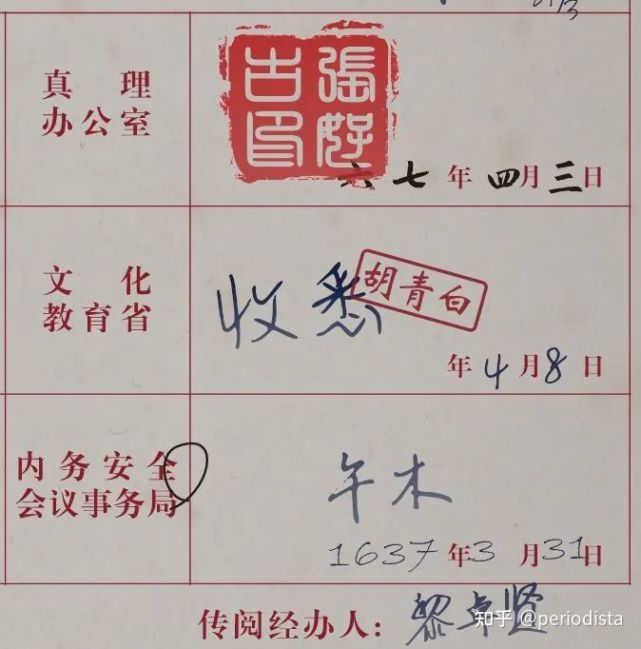 真理
办公室
張好
古印
六七年四月三日
文化
教育省
收悉
胡青白
年4月8日
内务安全
会议事务局
午木
1637年3月31日
传阅经办人:黎卓贤
知乎 @periodista